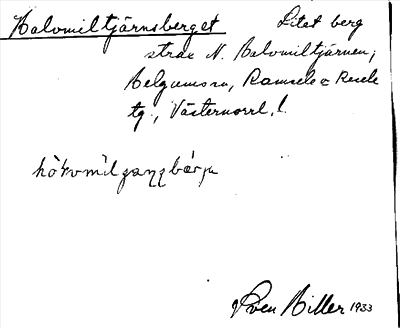 Halvmiltjärnsberget Litet berg
strax N. Halvmiltjärnen,
Helgumsån, Ramsele o Resele
tg., Västernorrl. l.
Sven Hiller 1933